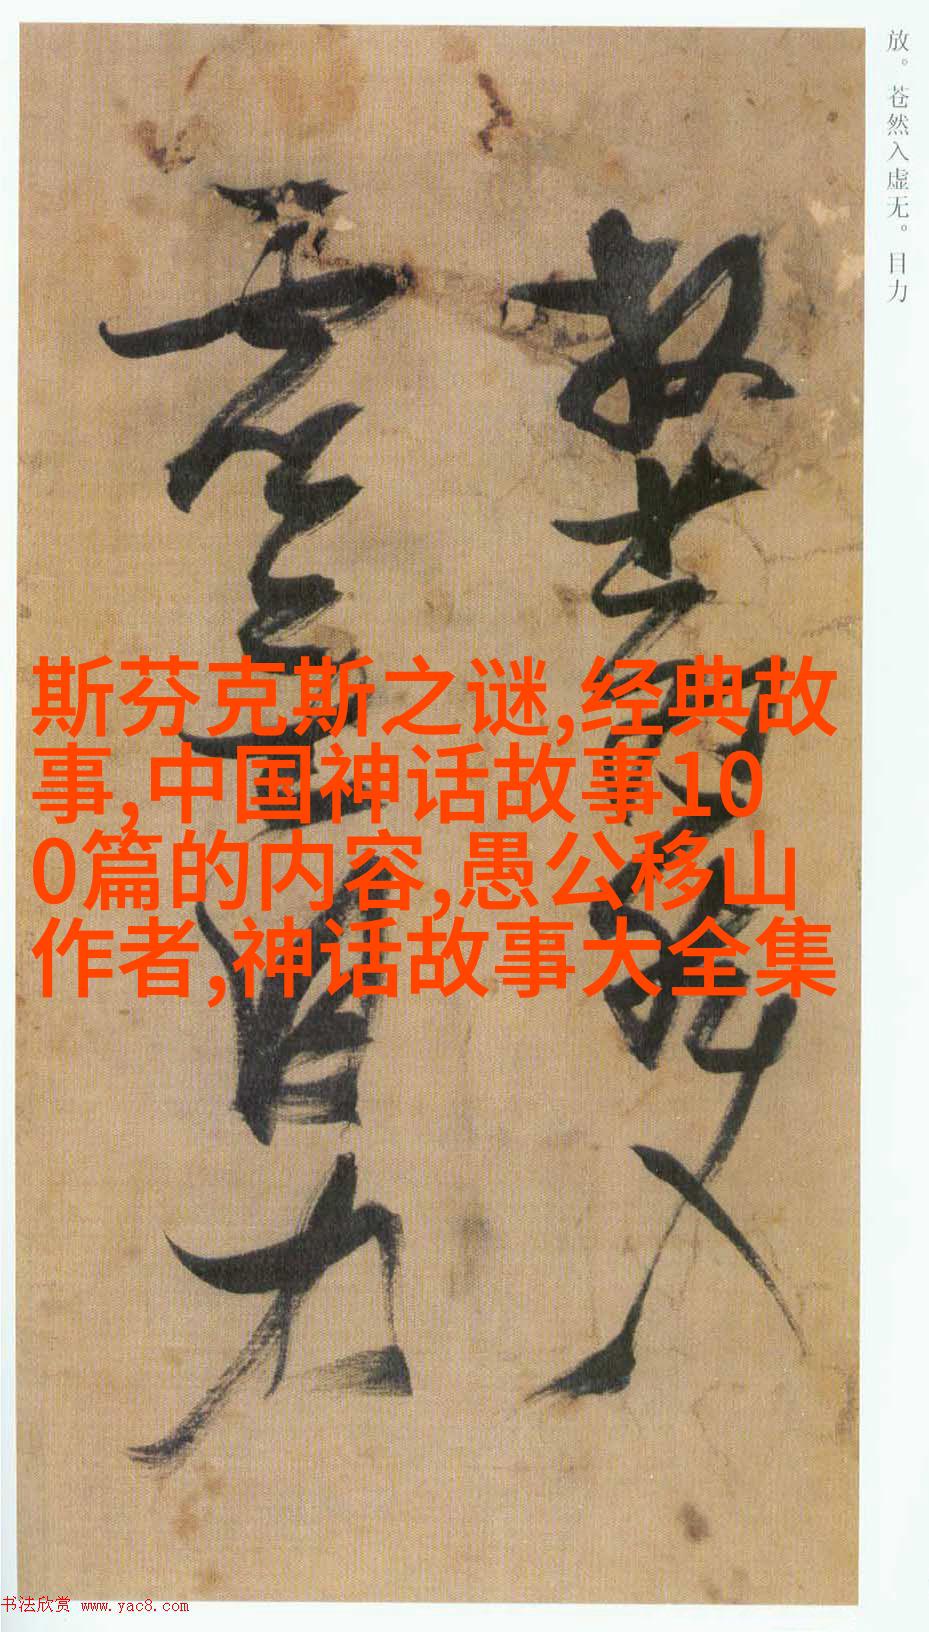 放。苍然入虚无。目力
放苍然入
虚无目力
斯芬克斯之谜,经典故
事,中国神话故事10
0篇的内容,愚公移山
作者,神话故事大全集
书法欣赏 www.yac8.com